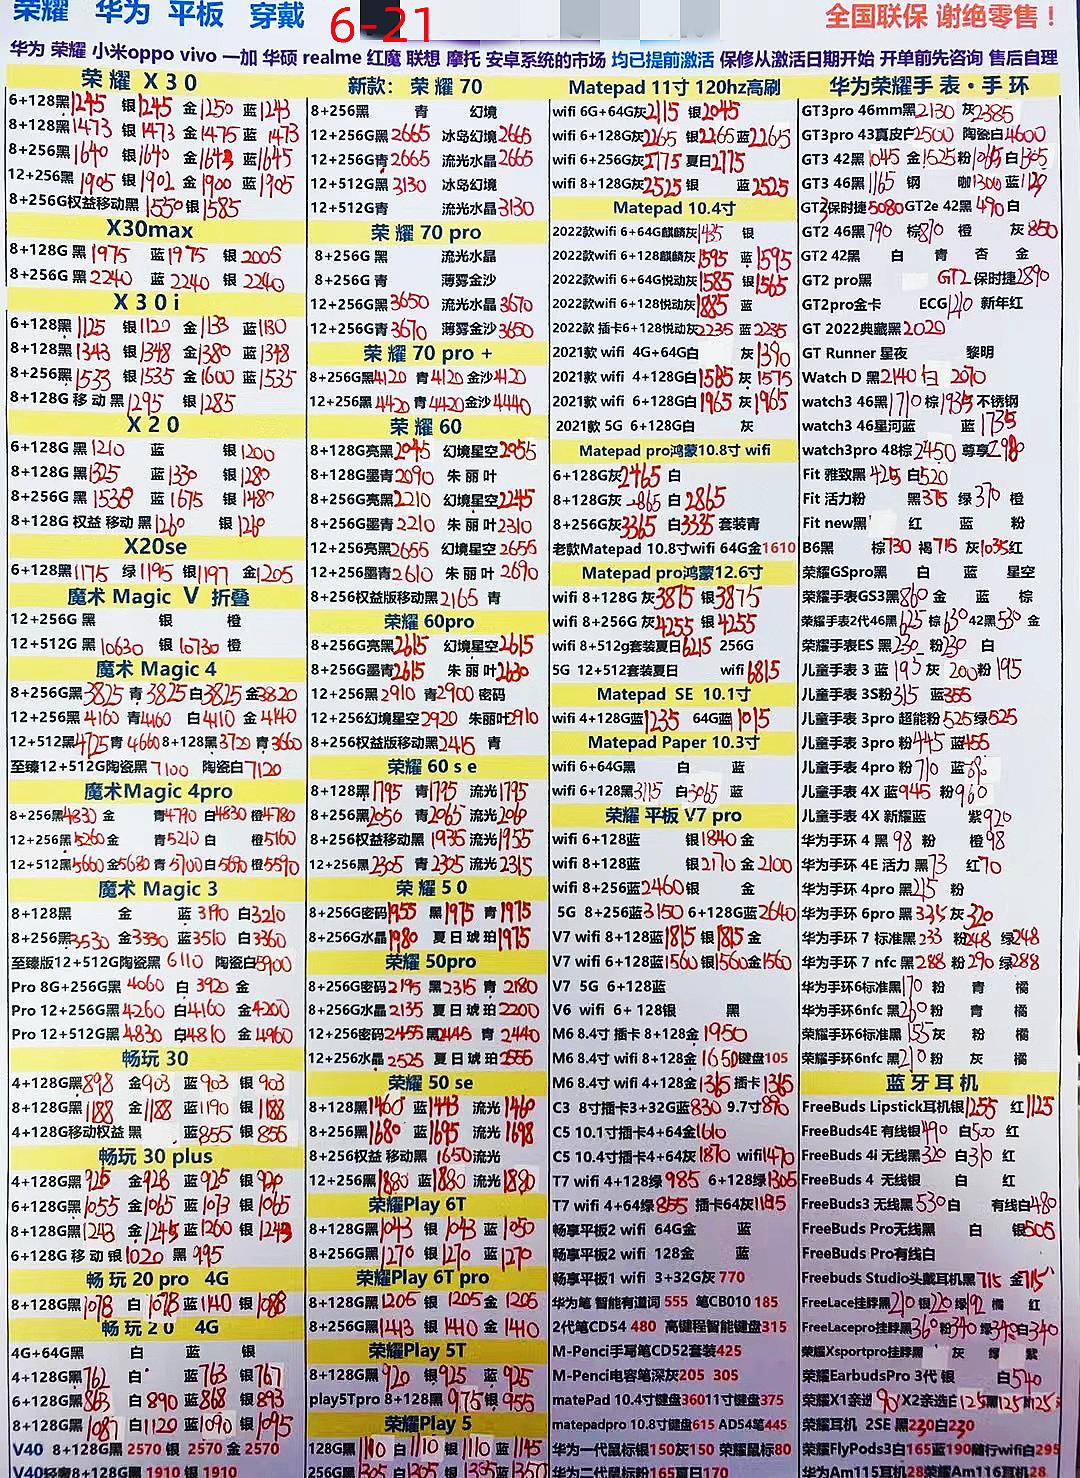 荣耀 华为 平板 穿戴
6-21
全国联保 谢绝零售！
华为 荣耀 小米oppo vivo 一加 华硕 realme 红魔 联想 摩托 安卓系统的市场 均已提前激活 保修从激活日期开始 开单前先咨询 售后自理
荣耀 X30
6+128黑1245 银1245 金1250 蓝1243
8+128黑1473 银1473 金1475 蓝1473
8+256黑1640 银1640 金1643 蓝1645
12+256黑1905 银1902 金1900 蓝1905
8+256G权益移动黑1550 银1585
X30max
8+128G 黑1975 蓝1975 银2005
8+256G 黑2240 蓝2240 银2240
X30i
6+128黑1125 银1120 金1133 蓝1130
8+128黑1343 银1348 金1380 蓝1348
8+256黑1533 银1535 金1600 蓝1535
8+128G 移动 黑1295 银1285
X20
6+128G 黑1210 蓝 银1200
8+128G 黑1325 蓝1330 银1280
8+256G 黑1535 蓝1675 银1480
8+128G 权益 移动 黑1260 银1260
X20se
6+128黑1175 绿1195 银1197 金1205
魔术 Magic V 折叠
12+256G 黑 银 橙
12+512G 黑10630 银10730 橙
魔术 Magic 4
8+256G黑3825 青3825 白3825 金3820
12+256黑4160 青4160 白4110 金4140
12+512黑4725 青4660 8+128黑3720 青3660
至臻12+512G陶瓷黑7100 陶瓷白7120
魔术Magic 4pro
8+256黑4830 金 青4790 白4830 橙4780
12+256黑5260 金 青5210 白 橙5160
12+512黑5660 金5680 青5700 白5690 橙5590
魔术 Magic 3
8+128黑 金 蓝3190 白3210
8+256黑3530 金3330 蓝3510 白3360
至臻版12+512G陶瓷黑6110 陶瓷白5900
Pro 8G+256G黑4060 白3920 金
Pro 12+256G黑4260 白4160 金4200
Pro 12+512G黑4830 白4810 金4960
畅玩 30
4+128G黑898 金903 蓝903 银903
8+128G黑1188 金1188 蓝1190 银1188
4+128G移动权益 黑 蓝855 银855
畅玩 30 plus
4+128G黑925 金928 蓝925 银920
6+128G黑1055 金1065 蓝1073 银1065
8+128G黑1243 金1245 蓝1260 银1243
6+128G 移动 银1020 黑995
畅玩 20 pro 4G
8+128G黑1078 白1078 蓝1140 银1088
畅玩 20 4G
4G+64G黑 白 蓝 银
4+128G黑762 白 蓝763 银767
6+128G黑863 白890 蓝868 银893
8+128G黑1087 白1120 蓝1090 银1095
V40 8+128G黑 2570 银 2570 金 2570
V40轻奢8+128G黑 1910 银 1910
新款： 荣耀 70
8+256G黑 青 幻境
12+256G黑2665 冰岛幻境2665
12+256G青2665 流光水晶2665
12+512G黑3130 冰岛幻境
12+512G青 流光水晶3130
荣耀 70 pro
8+256G 黑 流光水晶
8+256G 青 薄雾金沙
12+256G黑3650 流光水晶3670
12+256G青3670 薄雾金沙3650
荣耀 70 pro +
8+256G黑4120 青4120 金沙4120
12+256G黑4420 青4420 金沙4440
荣耀 60
8+128G亮黑2045 幻境星空2055
8+128G墨青2090 朱丽叶
8+256G亮黑2210 幻境星空2245
8+256G墨青2210 朱丽叶2310
12+256亮黑2655 幻境星空2655
12+256墨青2610 朱丽叶2690
8+256权益版移动黑2165 青
荣耀 60pro
8+256G亮黑2615 幻境星空2615
8+256G墨青2615 朱丽叶2630
12+256黑2910 青2900 密码
12+256幻境星空2920 朱丽叶2910
8+256权益版移动黑2415 青
荣耀 60 se
8+128黑1795 青1795 流光1795
8+256黑2050 青2065 流光2060
8+256G权益移动黑1935 流光1955
12+256黑2305 青2305 流光2315
荣耀 50
8+256G密码1955 黑1975 青1975
8+256G水晶1980 夏日琥珀1975
荣耀 50pro
8+256G密码2195 黑2315 青2180
8+256G水晶2135 夏日琥珀2200
12+256密码2455 黑2445 青2440
12+256水晶2525 夏日琥珀2555
荣耀 50 se
8+128黑1460 蓝1443 流光1460
8+256黑1680 蓝1695 流光1698
8+256权益 移动 黑1650 流光
12+256黑1880 蓝1880 流光1880
荣耀Play 6T
8+128G黑1043 银1043 蓝1050
8+256G黑1270 银1270 蓝1270
荣耀Play 6T pro
8+128G黑1205 银1205 金1205
8+256G黑1443 银1410 金1410
荣耀Play 5T
8+128G黑920 银925 蓝925
play5Tpro 8+128黑975 银955
荣耀Play 5
128G黑1110 白1110 银1110 蓝1145
256G黑1305 白1305 银1335 蓝1350
Matepad 11寸 120hz高刷
wifi 6G+64G灰2115 银2045
wifi 6+128G灰2265 银2265 蓝2265
wifi 6+256G灰2775 夏日2775
wifi 8+128G灰2525 银 蓝2525
Matepad 10.4寸
2022款wifi 6+64G麒麟灰1485 银
2022款wifi 6+128麒麟灰1595 蓝1595
2022款wifi 6+64G悦动灰1585 银1565
2022款wifi 6+128悦动灰1885 蓝
2022款 插卡6+128悦动灰2235 蓝2235
2021款 wifi 4G+64G白 灰1390
2021款 wifi 4+128G白1585 灰1575
2021款 wifi 6+128G白1965 灰1965
2021款 5G 6+128G白 灰
Matepad pro鸿蒙10.8寸 wifi
6+128G灰2465 白
8+128G灰2865 白2865
8+256G灰3365 白3335 套装青
老款Matepad 10.8寸wifi 64G金1610
Matepad pro鸿蒙12.6寸
wifi 8+128G 灰3875 银3875
wifi 8+256G 灰4255 银4255
wifi 8+512g套装夏日6215 256G
5G 12+512套装夏日 wifi6815
Matepad SE 10.1寸
wifi 4+128G蓝1235 64G蓝1015
Matepad Paper 10.3寸
wifi 6+64G黑 白 蓝
wifi 6+128黑3115 白3065 蓝
荣耀 平板 V7 pro
wifi 6+128蓝 银1840 金
wifi 8+128蓝 银2170 金2100
wifi 8+256蓝2460 银 金
5G 8+256蓝3150 6+128G蓝2640
V7 wifi 8+128蓝1815 银1815 金
V7 wifi 6+128蓝1560 银1560 金1560
V7 5G 6+128蓝
V6 wifi 6+128银 黑
M6 8.4寸 插卡 8+128金1950
M6 8.4寸 wifi 8+128金1650 键盘105
M6 8.4寸 wifi 4+128金1365 插卡1365
C3 8寸插卡3+32G蓝830 9.7寸890
C5 10.1寸插卡4+64金1610
C5 10.4寸插卡4+64灰1870 wifi1470
T7 wifi 4+128绿985 6+128绿1305
T7 wifi 4+64绿855 插卡64灰1185
畅享平板2 wifi 64G金 蓝
畅享平板2 wifi 128金 蓝
畅享平板1 wifi 3+32G灰 770
华为笔 智能有道词 555 笔CB010 185
2代笔CD54 480 高键程智能键盘315
M-Penci手写笔CD52套装425
M-Penci电容笔深灰205 305
matePad 10.4寸键盘360 11寸键盘375
matepadpro 10.8寸键盘615 AD54笔445
华为一代鼠标银150灰150 荣耀鼠标80
华为二代鼠标粉165夏日170
华为荣耀手表·手环
GT3pro 46mm黑2130 灰2385
GT3pro 43真皮白2500 陶瓷白4600
GT3 42黑1045 金1625 粉1065 白1305
GT3 46黑1165 钢 咖1300 蓝1120
GT2保时捷5080 GT2e 42黑490 白
GT2 46黑790 棕810 橙 灰850
GT2 42黑 白 青 杏 金
GT2 pro黑 GT2 保时捷2890
GT2pro金卡 ECG1210 新年红
GT 2022典藏黑2020
GT Runner 星夜 黎明
Watch D 黑2140 白 2070
watch3 46黑1710 棕1935 不锈钢
watch3 46星河蓝 蓝1735
watch3pro 48棕2450 尊享2980
Fit 雅致黑425 白520
Fit 活力粉 黑375 绿370 橙
Fit new黑 红 蓝 粉
B6黑 棕730 褐715 灰1035 红
荣耀GSpro黑 白 蓝 星空
荣耀手表GS3黑860 金 蓝 棕
荣耀手表2代46黑625 棕630 42黑530 金
荣耀手表ES 黑230 粉230 白
儿童手表 3 蓝195 灰200 粉195
儿童手表 3S粉315 蓝355
儿童手表 3pro 超能粉525 绿525
儿童手表 3pro 粉445 蓝455
儿童手表 4pro 粉710 蓝
儿童手表 4X 蓝945 粉960
儿童手表 4X 新耀蓝 紫920
华为手环 4 黑98 粉 橙98
华为手环 4E 活力 黑73 红70
华为手环 4pro 黑215 粉
华为手环 6pro 黑335 灰320
华为手环 7 标准黑233 粉248 绿248
华为手环 7 nfc 黑288 粉290 绿288
华为手环6标准黑170 粉 青 橘
华为手环6nfc 黑260 粉 青 橘
荣耀手环6标准黑155 灰 粉 橘
荣耀手环6nfc 黑210 粉 灰 橘
蓝牙耳机
FreeBuds Lipstick耳机银1255 红1125
FreeBuds4E 有线银490 白500 红
FreeBuds 4i 无线黑320 白310 红
FreeBuds 4 无线银 白 红
FreeBuds3 无线黑530 白 有线白480
FreeBuds Pro无线黑 白 银505
FreeBuds Pro有线白
Freebuds Studio头戴耳机黑715 金715
FreeLace挂脖黑210 银220 绿192 橘 红
FreeLacepro挂脖黑360 粉340 绿340 白340
荣耀Xsportpro挂脖黑 灰 绿 紫
荣耀EarbudsPro 3代 银 白540
荣耀X1亲选90 X2亲选白125 黑125
荣耀耳机 2SE 黑230 白230
荣耀FlyPods3白165蓝190随行wifi白295
华为Am115耳机28荣耀Am116耳机28